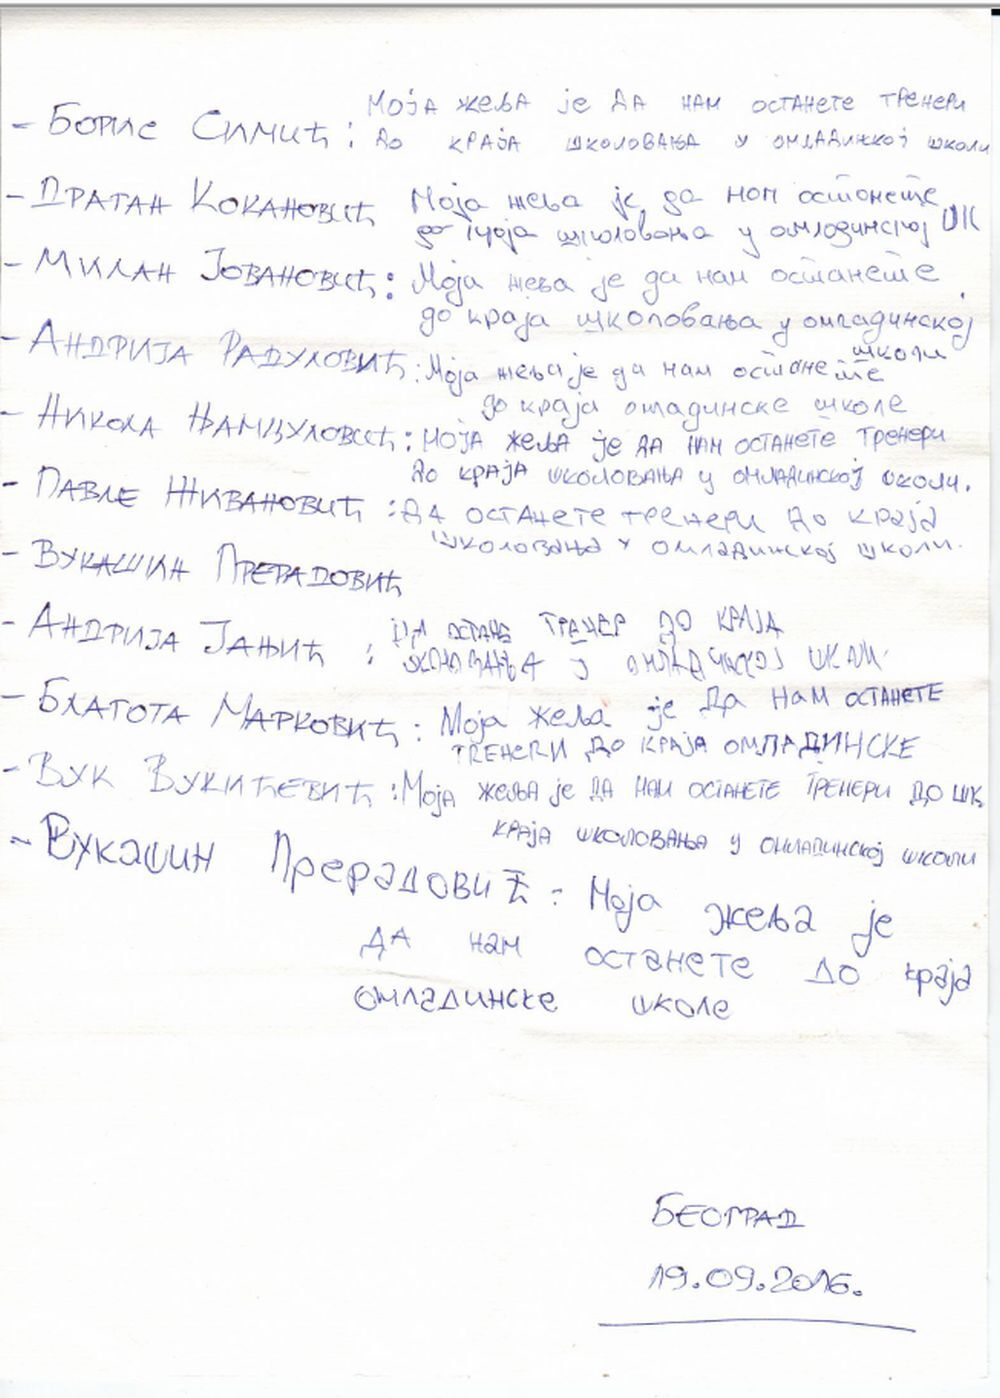 МОЈА ЖЕЉА ЈЕ ДА НАМ ОСТАНЕТЕ ТРЕНЕРИ
- СИМИЋ: ДО КРАЈА ШКОЛОВАЊА У ОМЛАДИНСКОЈ ШКОЛИ
- ДРАГАН КОКАНОВИЋ Моја жеља је да нам останете
до краја школовања у омладинској шк
- МИЛАН ЈОВАНОВИЋ: Моја жеља је да нам останете
до краја школовања у омладинској
школи
- АНДРИЈА РАДУЛОВИЋ: Моја жеља је да нам останете
до краја омладинске школе
- НИКОЛА ЊАМЦУЛОВИЋ: МОЈА ЖЕЉА ЈЕ ДА НАМ ОСТАНЕТЕ ТРЕНЕРИ
ДО КРАЈА ШКОЛОВАЊА У ОМЛАДИНСКОЈ ШКОЛИ.
- ПАВЛЕ ЖИВАНОВИЋ: ДА ОСТАНЕТЕ ТРЕНЕРИ ДО КРАЈА
ШКОЛОВАЊА У ОМЛАДИНСКОЈ ШКОЛИ.
- ВУКАШИН ПРЕРАДОВИЋ
- АНДРИЈА ЈАЊИЋ: ДА ТРЕНЕР ДО КРАЈА
У
- БЛАГОТА МАРКОВИЋ: Моја жеља је ДА НАМ ОСТАНЕТЕ
ТРЕНЕРИ ДО КРАЈА ОМЛАДИНСКЕ
- ВУК ВУКИЋЕВИЋ: МОЈА ЖЕЉА ЈЕ ДА НАМ ОСТАНЕТЕ ТРЕНЕРИ ДО ШК
КРАЈА ШКОЛОВАЊА У ОМЛАДИНСКОЈ ШКОЛИ
- Вукашин Прерадовић: Моја жеља је
ДА нам останете до краја
омладинске школе
БЕОГРАД
19.09.2016.